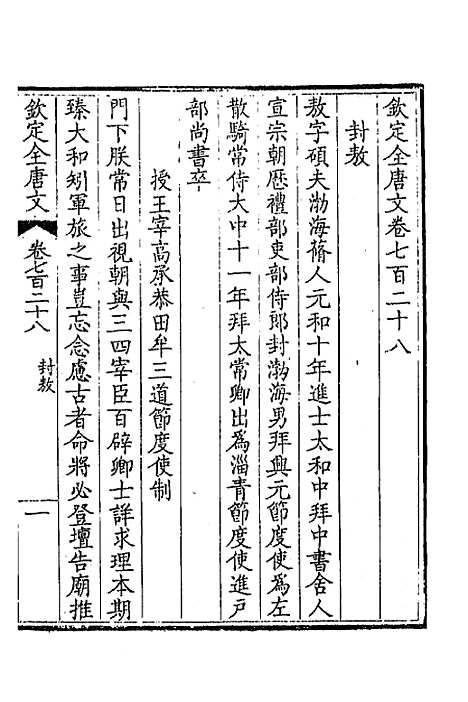 欽定全唐文卷七百二十八
封敖
敖字碩夫渤海蓨人元和十年進士太和中拜中書舍人
宣宗朝歷禮部吏部侍郎封渤海男拜興元節度使爲左
散騎常侍大中十一年拜太常卿出爲淄青節度使進戶
部尚書卒
授王宰高承恭田牟三道節度使制
門下朕常日出視朝與三四宰臣百辟卿士詳求理本期
臻大和矧軍旅之事豈忘念慮古者命將必登壇告廟推
欽定全唐文
卷七百二十八
封敖
一